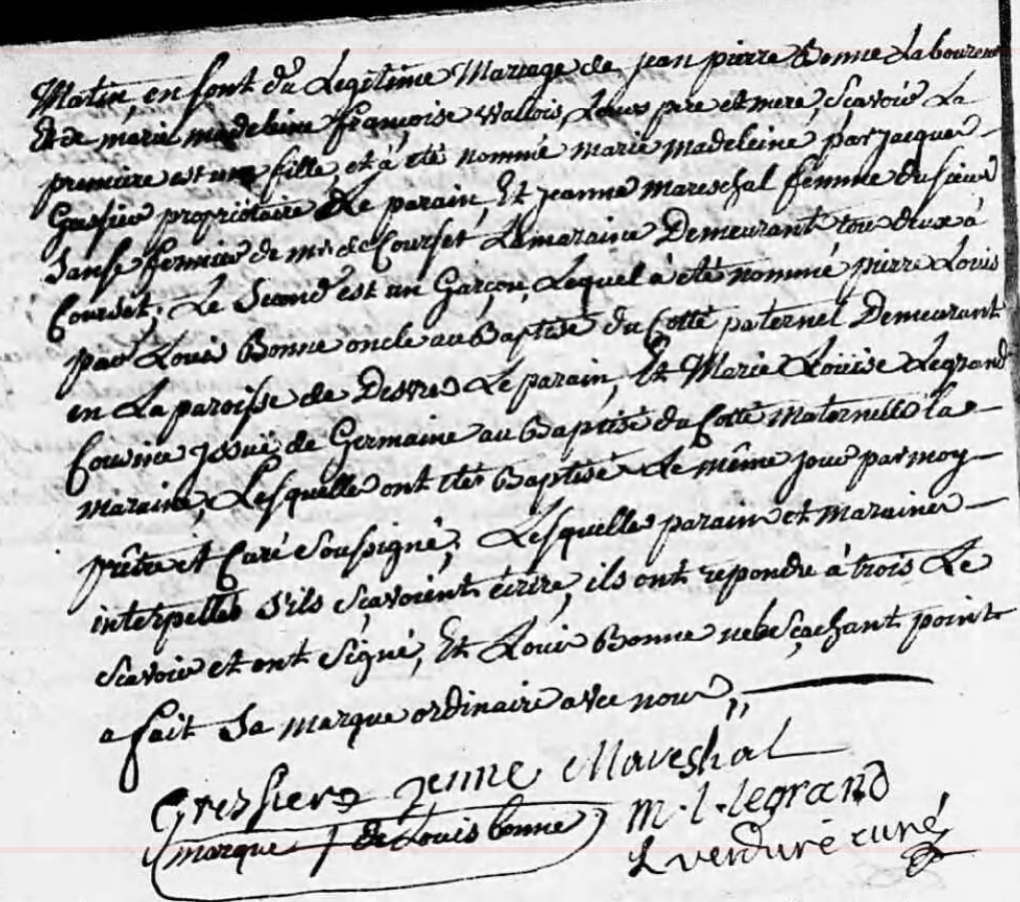 Matin, en sont du Legitime Mariage de jean pierre Bonne Laboureur
Et de marie madeleine françoise Wallois, Leurs pere et mere, Scavoir La
premiere est une fille, et à eté nommé marie madeleine par jacques
Gressier propriétaire Le parain, Et jeanne mareschal femme du sieur
Sanse fermier de mr de Courset La maraine Demeurant tou deux à
Courset; Le Second est un Garçon, Lequel à eté nommé pierre Louis
par Louis Bonne oncle au Baptisé du Cotté paternel Demeurant
en La paroisse de Desvres Le parain, Et Marie Loüise Legrand
Cousine issuë de Germaine au Baptisé du Cotté maternelle la
maraine, Lesquelle ont eté Baptisé Le même jour par moy
prêtre et Curé Soussigné; Lesquelles parain et maraines
interpellés S'ils Scavoient écrire, ils ont repondu à trois Le
Scavoir et ont Signé, Et Louis Bonne ne Le Sçachant point
a fait Sa marque ordinaire avec nous,,
Gressier jenne Mareshal
marque de Louis bonne m. l. legrand
L verduré curé